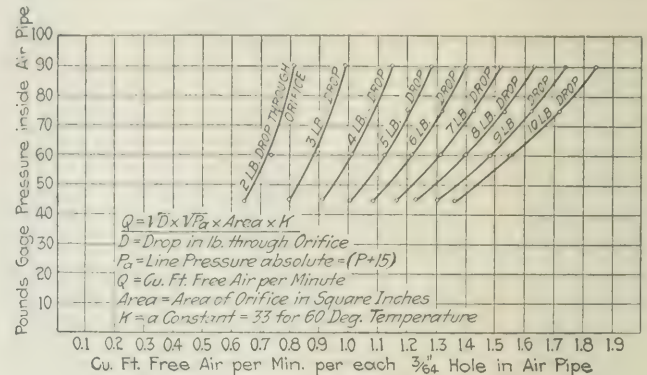 Pounds Gage Pressure inside Air Pipe
100
90
80
70
60
50
40
30
20
10
2 LB. DROP THROUGH ORIFICE
3 LB. DROP
4 LB. DROP
5 LB. DROP
6 LB. DROP
7 LB. DROP
8 LB. DROP
9 LB. DROP
10 LB. DROP
Q = √D x √Pa x Area x K
D = Drop in lb. through Orifice
Pa = Line Pressure absolute = (P+15)
Q = Cu. Ft. Free Air per Minute
Area = Area of Orifice in Square Inches
K = a Constant = 33 for 60 Deg. Temperature
0.1 0.2 0.3 0.4 0.5 0.6 0.7 0.8 0.9 1.0 1.1 1.2 1.3 1.4 1.5 1.6 1.7 1.8 1.9
Cu. Ft. Free Air per Min. per each 3/64" Hole in Air Pipe